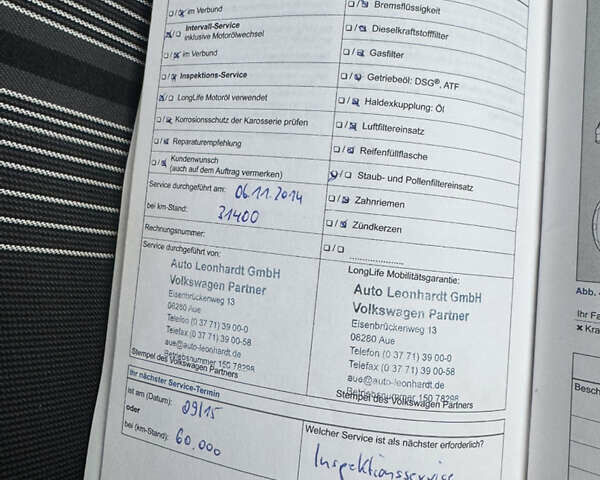 ☐/☒ im Verbund
Intervall-Service
☒/☐ inklusive Motorölwechsel
☐/☒ im Verbund
☐/☒ Inspektions-Service
☒/☐ LongLife Motoröl verwendet
☐/☒ Korrosionsschutz der Karosserie prüfen
☐/☒ Reparaturempfehlung
☐/☒ Kundenwunsch
(auch auf dem Auftrag vermerken)
Service durchgeführt am: 06.11.2014
bei km-Stand: 31400
Rechnungsnummer:
Service durchgeführt von:
Auto Leonhardt GmbH
Volkswagen Partner
Eisenbrückenweg 13
08280 Aue
Telefon (0 37 71) 39 00-0
Telefax (0 37 71) 39 00-58
aue@auto-leonhardt.de
Betriebsnummer 150 78298
Stempel des Volkswagen Partners
☐/☒ Bremsflüssigkeit
☐/☒ Dieselkraftstofffilter
☐/☒ Gasfilter
☐/☒ Getriebeöl: DSG®, ATF
☐/☒ Haldexkupplung: Öl
☐/☒ Luftfiltereinsatz
☐/☒ Reifenfüllflasche
☒/☐ Staub- und Pollenfiltereinsatz
☐/☒ Zahnriemen
☐/☒ Zündkerzen
☐/☐
LongLife Mobilitätsgarantie:
Auto Leonhardt GmbH
Volkswagen Partner
Eisenbrückenweg 13
08280 Aue
Telefon (0 37 71) 39 00-0
Telefax (0 37 71) 39 00-58
aue@auto-leonhardt.de
Betriebsnummer 150 78298
Stempel des Volkswagen Partners
Ihr nächster Service-Termin
ist am (Datum): 09/15
oder
bei (km-Stand): 60.000
Welcher Service ist als nächster erforderlich?
Inspektionsservice
Abb.
Ihr Fa
× Kra
Besch